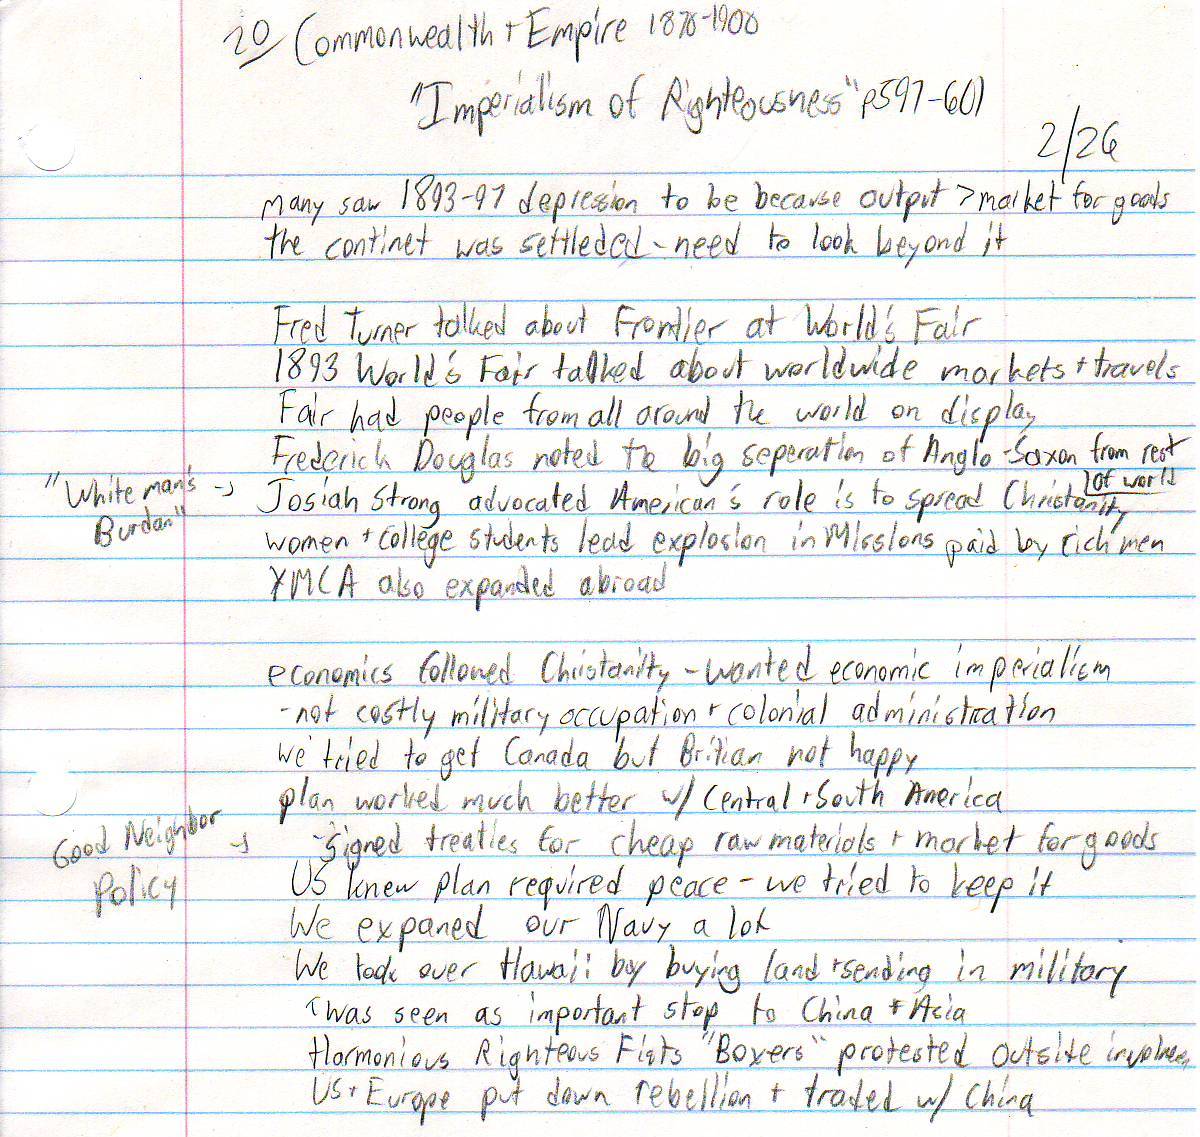 20/ Commonwealth + Empire 1870-1900
"Imperialism of Righteousness" p597-601
2/26
many saw 1893-97 depression to be because output > market for goods
the continet was settleded - need to look beyond it
Fred Turner talked about Frontier at World's Fair
1893 World's Fair talked about worldwide markets + travels
Fair had people from all around the world on display
Frederick Douglas noted the big seperation of Anglo-Saxon from rest
of world
"White man's →
Burdan"
Josiah Strong advocated American's role is to spread Christanity
women + college students lead explosion in Missions paid by rich men
YMCA also expanded abroad
economics followed Christanity - wanted economic imperialism
- not costly military occupation + colonial administration
we tried to get Canada but Britian not happy
plan worked much better w/ Central + South America
Good Neighbor →
Policy
- signed treaties for cheap raw materials + market for goods
US knew plan required peace - we tried to keep it
We expaned our Navy a lot
We took over Hawaii by buying land + sending in military
↑ was seen as important stop to China + Asia
Harmonious Righteous Fists "Boxers" protested outsite
US + Europe put down rebellion + traded w/ China